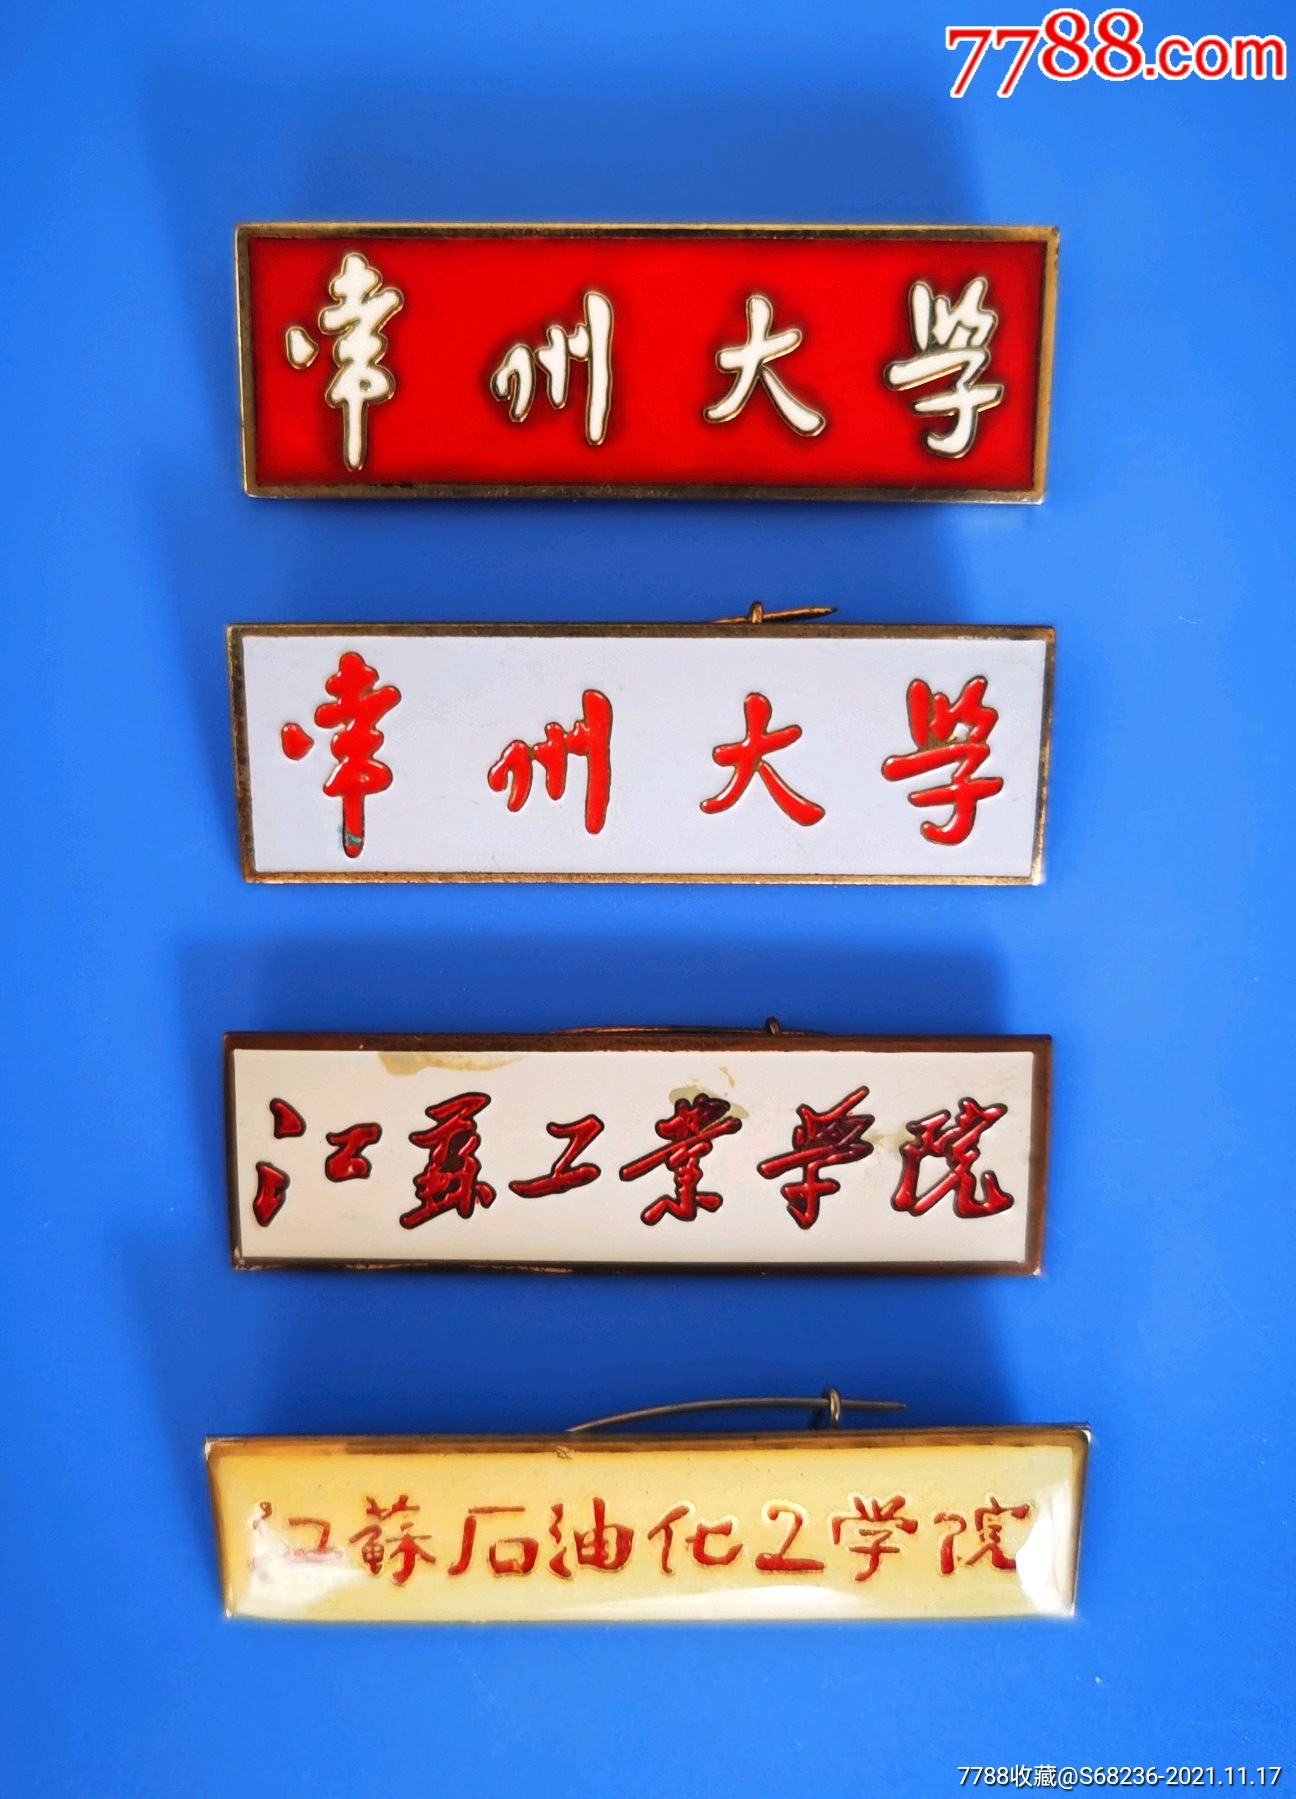 7788.com
常州大学
常州大学
江蘇工業学院
江蘇石油化工学院
7788收藏@S68236-2021.11.17